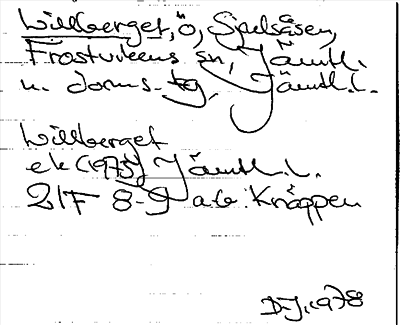 Willberget, ö, Spelsåsen,
Frostvikens sn, Jämtl.
n. doms. tg, Jämtl. l.
Willberget
ek (1975) Jämtl. l.
21F 8-9 a.b. Knäppen
D-J, 1978